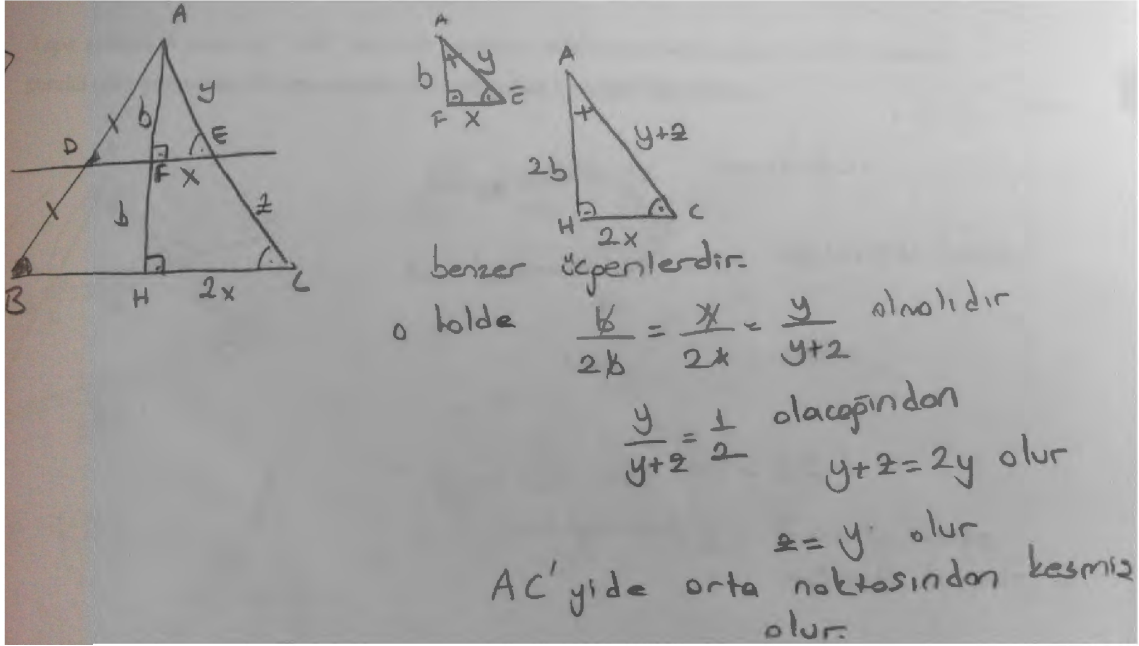 A
b
y
D
E
F
x
b
z
B
H
2x
C
A
b
y
F
x
E
A
2b
y+z
H
2x
C
benzer üçgenlerdir.
o halde b/2b = x/2x = y/y+z olmalıdır
y/y+z = 1/2 olacağından
y+z=2y olur
z=y olur
AC'yide orta noktasından kesmiş
olur.